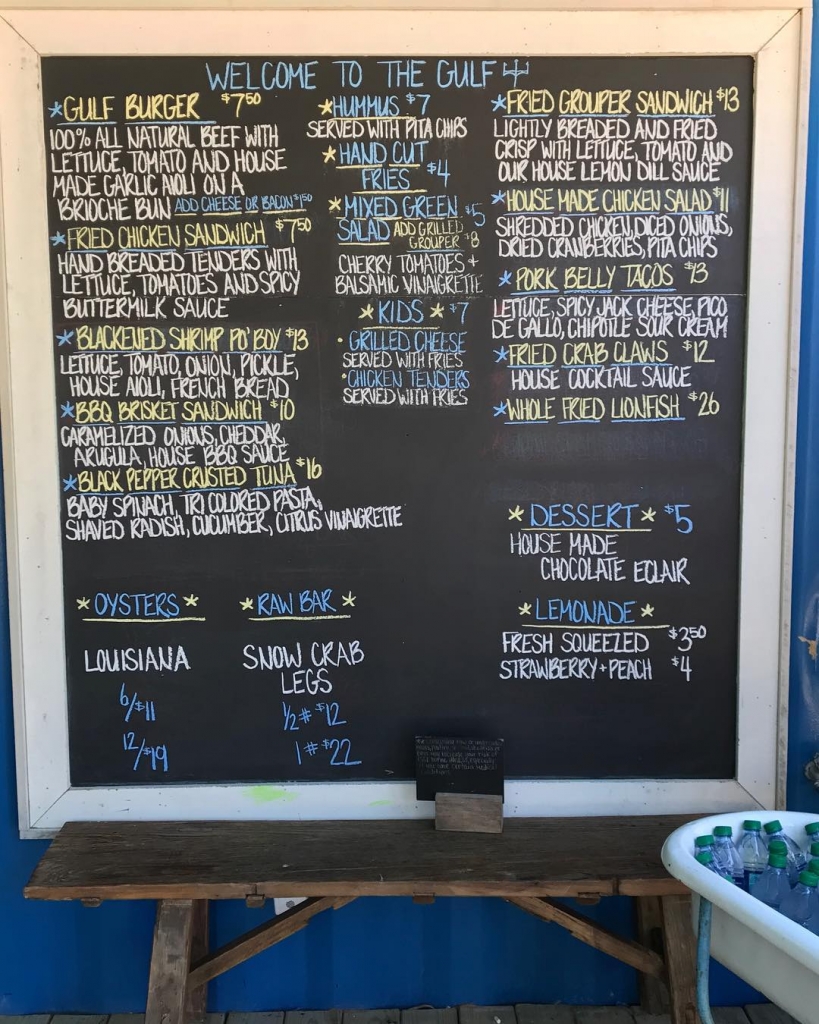 WELCOME TO THE GULF
*GULF BURGER $7.50
100% ALL NATURAL BEEF WITH
LETTUCE, TOMATO AND HOUSE
MADE GARLIC AIOLI ON A
BRIOCHE BUN ADD CHEESE OR BACON $1.50
*FRIED CHICKEN SANDWICH $7.50
HAND BREADED TENDERS WITH
LETTUCE, TOMATOES AND SPICY
BUTTERMILK SAUCE
*BLACKENED SHRIMP PO' BOY $13
LETTUCE, TOMATO, ONION, PICKLE,
HOUSE AIOLI, FRENCH BREAD
*BBQ BRISKET SANDWICH $10
CARAMELIZED ONIONS, CHEDDAR,
ARUGULA, HOUSE BBQ SAUCE
*BLACK PEPPER CRUSTED TUNA $16
BABY SPINACH, TRI COLORED PASTA,
SHAVED RADISH, CUCUMBER, CITRUS VINAIGRETTE
*HUMMUS $7
SERVED WITH PITA CHIPS
*HAND CUT
FRIES $4
*MIXED GREEN $5
SALAD ADD GRILLED
GROUPER $8
CHERRY TOMATOES +
BALSAMIC VINAIGRETTE
*KIDS* $7
•GRILLED CHEESE
SERVED WITH FRIES
•CHICKEN TENDERS
SERVED WITH FRIES
*FRIED GROUPER SANDWICH $13
LIGHTLY BREADED AND FRIED
CRISP WITH LETTUCE, TOMATO AND
OUR HOUSE LEMON DILL SAUCE
*HOUSE MADE CHICKEN SALAD $11
SHREDDED CHICKEN, DICED ONIONS,
DRIED CRANBERRIES, PITA CHIPS
*PORK BELLY TACOS $13
LETTUCE, SPICY JACK CHEESE, PICO
DE GALLO, CHIPOTLE SOUR CREAM
*FRIED CRAB CLAWS $12
HOUSE COCKTAIL SAUCE
*WHOLE FRIED LIONFISH $26
*DESSERT* $5
HOUSE MADE
CHOCOLATE ECLAIR
*LEMONADE*
FRESH SQUEEZED $3.50
STRAWBERRY + PEACH $4
*OYSTERS*
LOUISIANA
6/$11
12/$19
*RAW BAR*
SNOW CRAB
LEGS
1/2# $12
1# $22